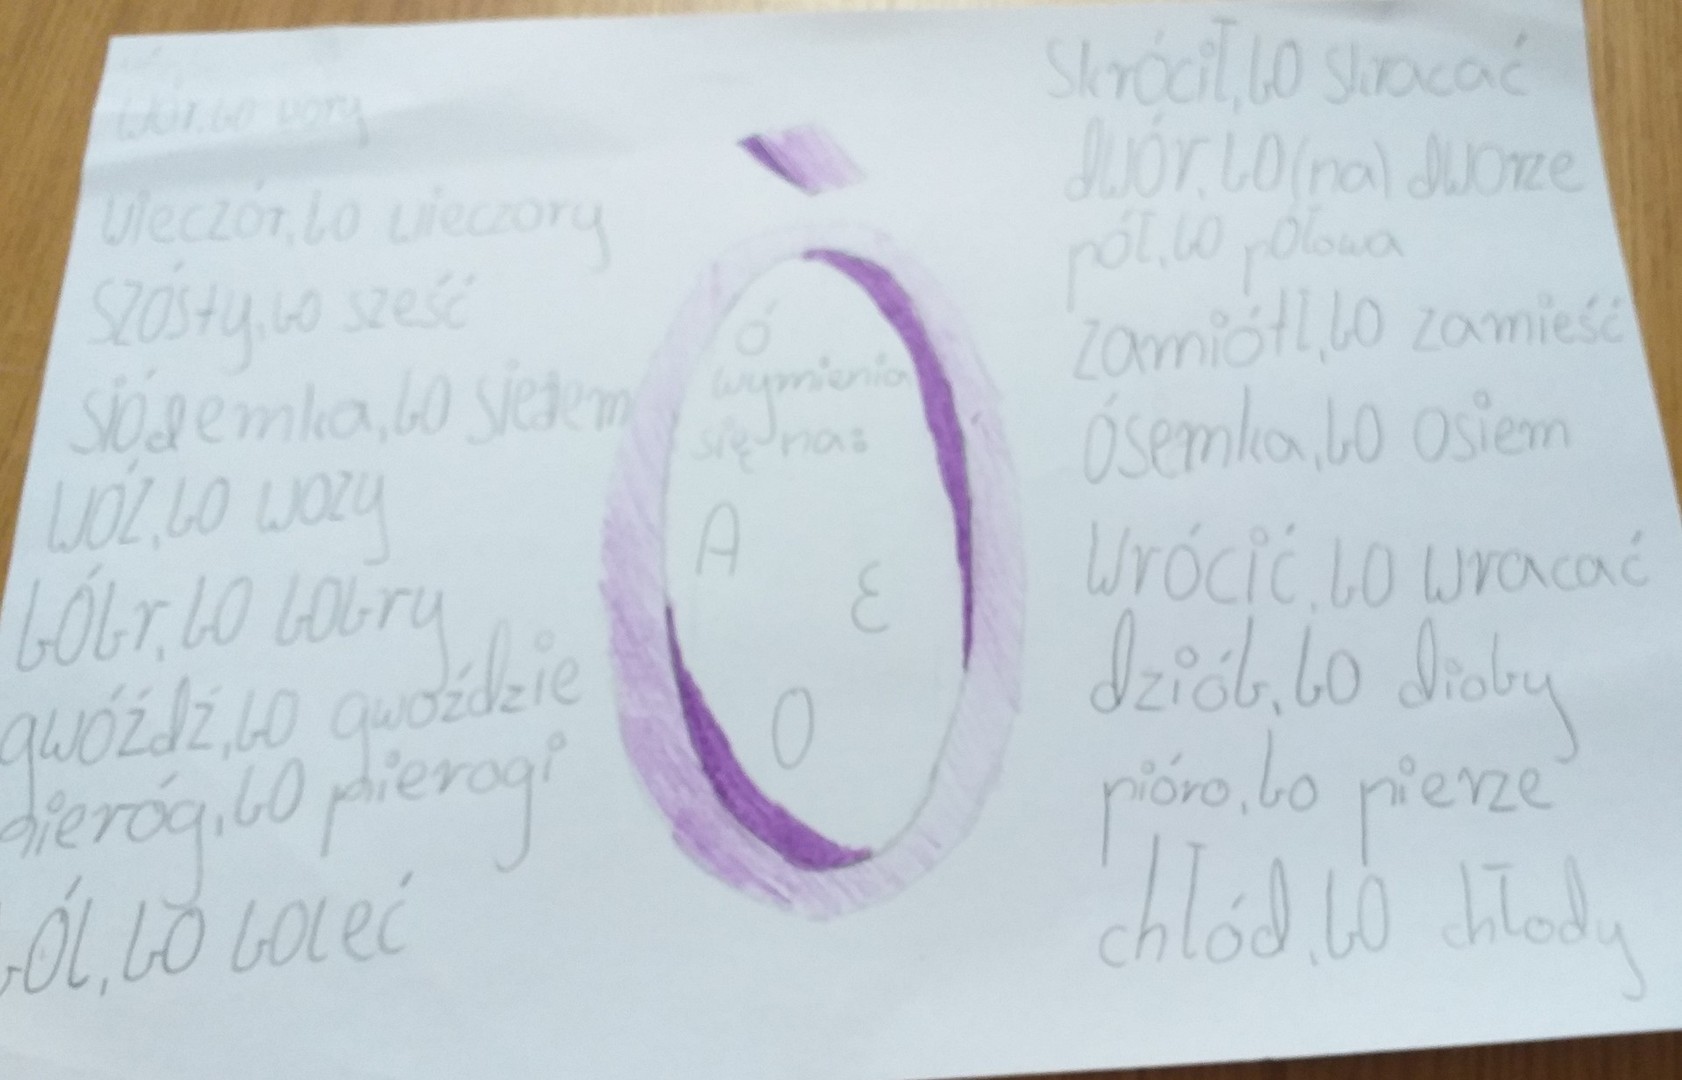 wór, bo wory
wieczór, bo wieczory
szósty, bo sześć
siódemka, bo siedem
wóz, bo wozy
bóbr, bo bobry
gwóźdź, bo gwoździe
pieróg, bo pierogi
ból, bo boleć
Ó
wymienia
się na:
A
E
O
Skrócił, bo skracać
dwór, bo (na) dworze
pół, bo połowa
zamiótł, bo zamieść
ósemka, bo osiem
Wrócić, bo wracać
dziób, bo dioby
pióro, bo pierze
chłód, bo chłody